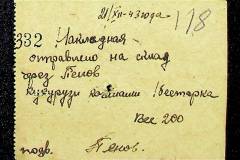 21/XII-43 года
118
332 Накладная
отправлено на склад
через Пенов
Кукурузы
Вес 200
подв. Пенов.